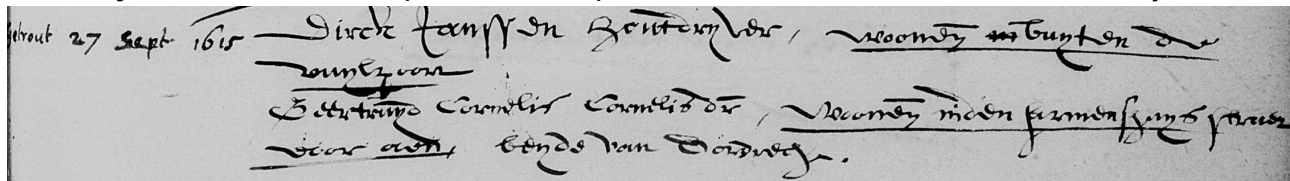 getrout 27 Sept 1615 Dirck Janssen houtdryver, woonen buyten de
vuylpoort
Geertruyd Cornelis Cornelis dr, woonen inden armenhuys straet
voor aen, beyde van Dordrecht.